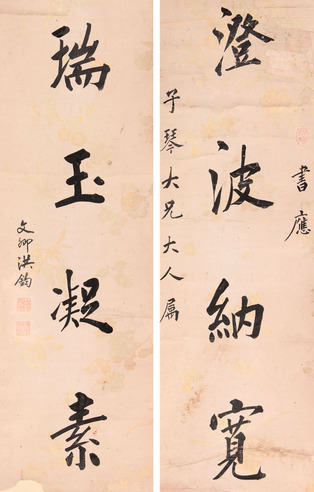 書應
澄波納寬
子琴大兄大人屬
瑞玉凝素
文卿洪鈞